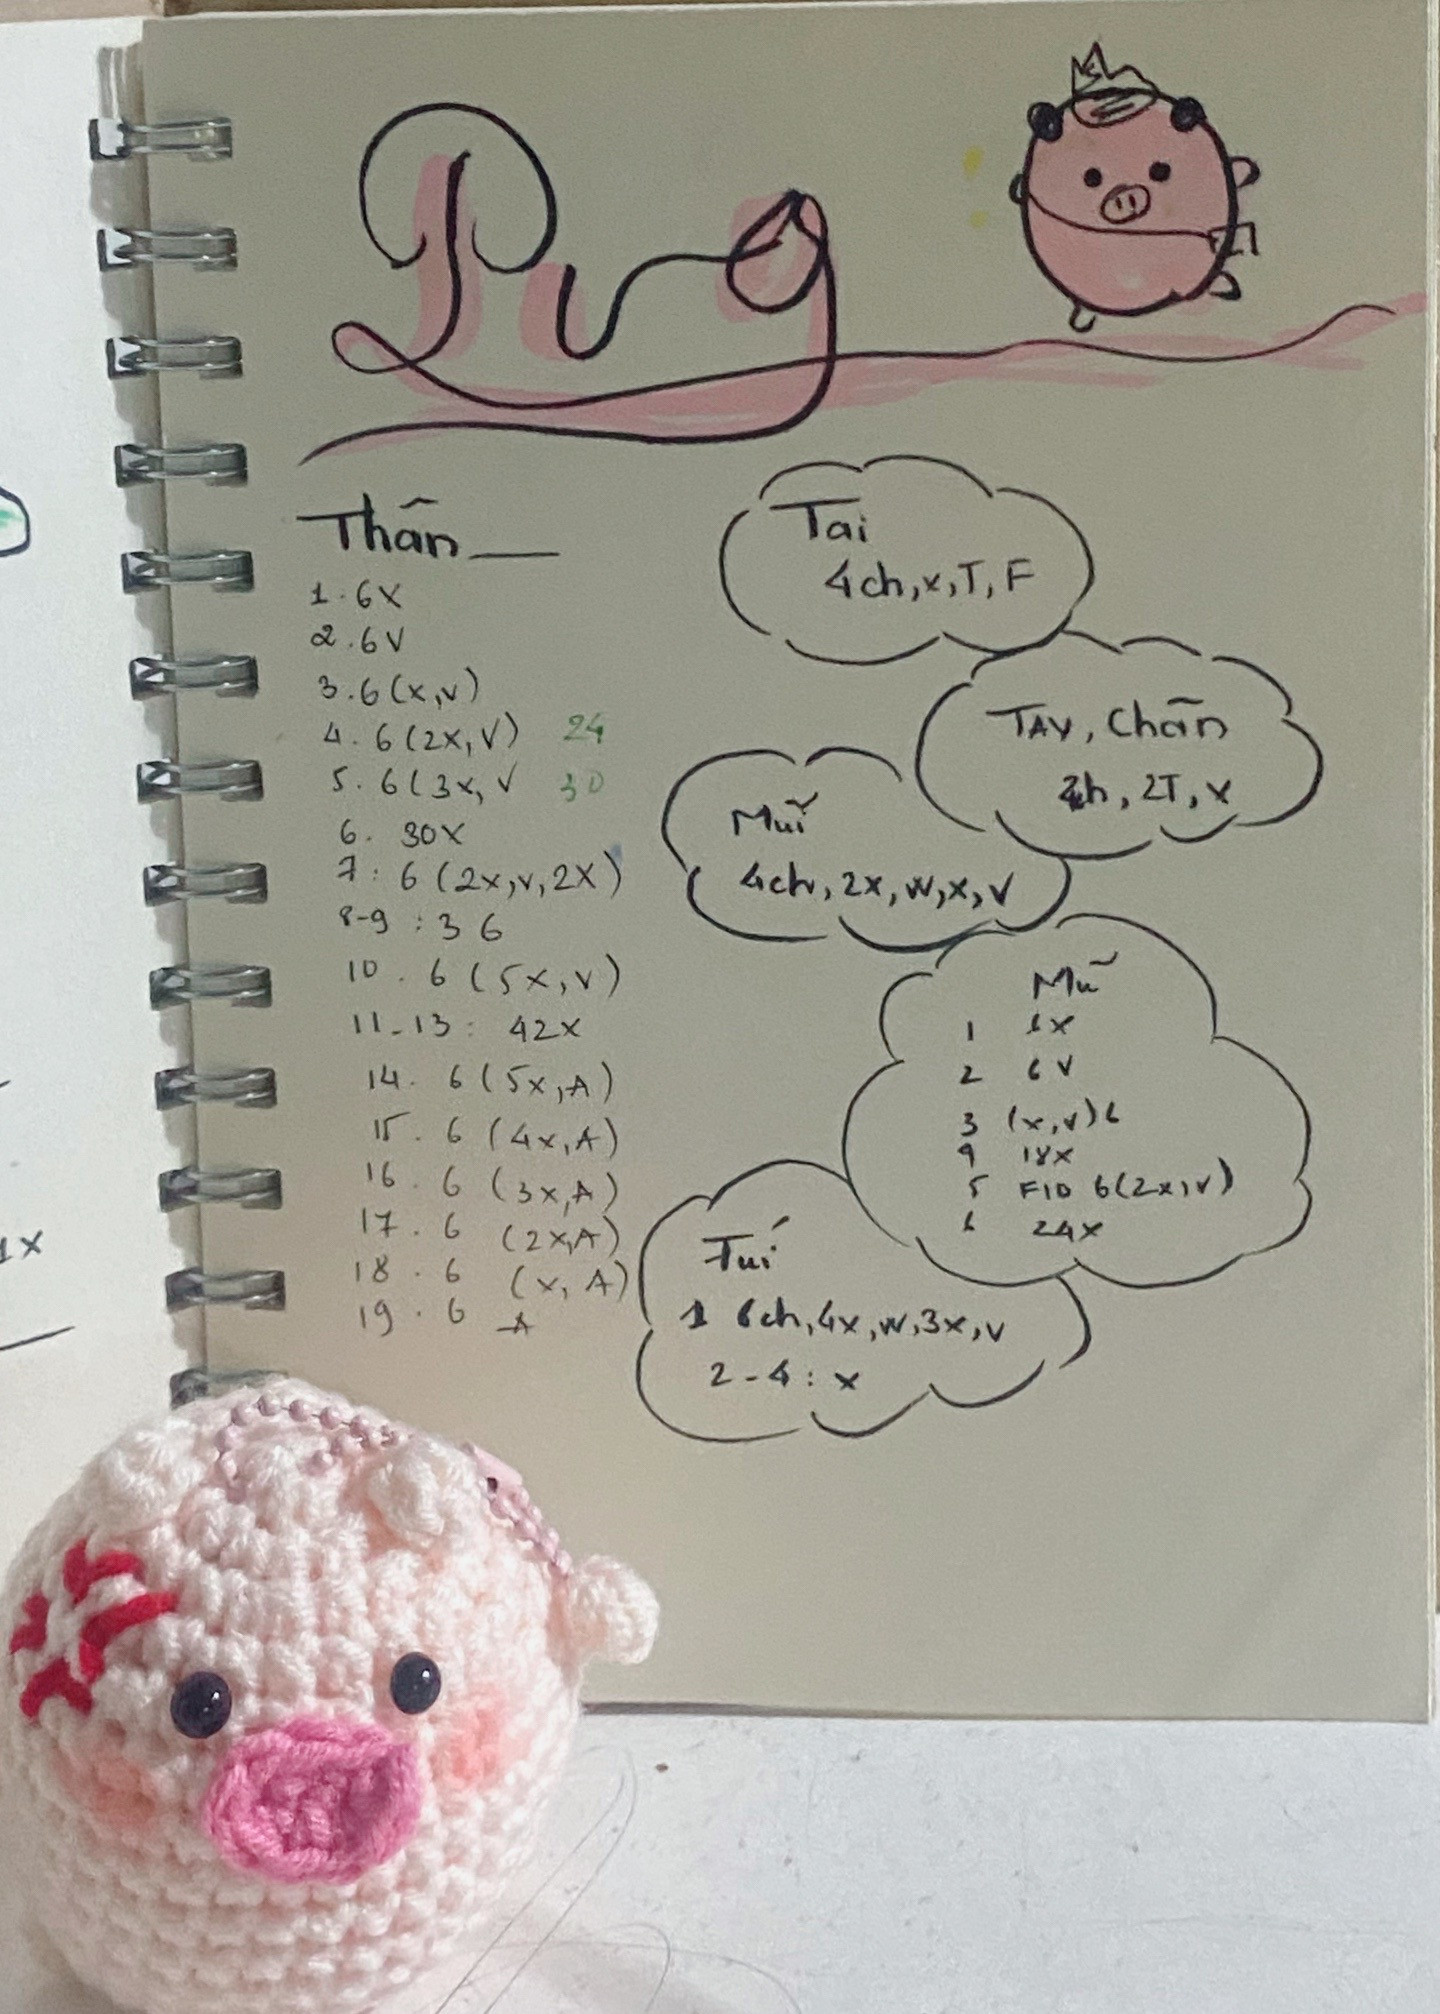 Pug
Thân
1. 6X
2. 6V
3. 6(x,v)
4. 6(2x,V) 24
5. 6(3x,V 30
6. 30X
7: 6(2x,v,2X)
8-9: 36
10. 6(5x,v)
11-13: 42x
14. 6(5x,A)
15. 6(4x,A)
16. 6(3x,A)
17. 6(2x,A)
18. 6(x,A)
19. 6 A
Tai
4ch,x,T,F
TAY, Chân
2T,x
Mũi
4ch,2x,W,x,V
Mũ
1 6x
2 6V
3 (x,v)6
4 18x
5 F10 6(2x,v)
6 24x
Túi
1 6ch,4x,w,3x,v
2-4: x
1x